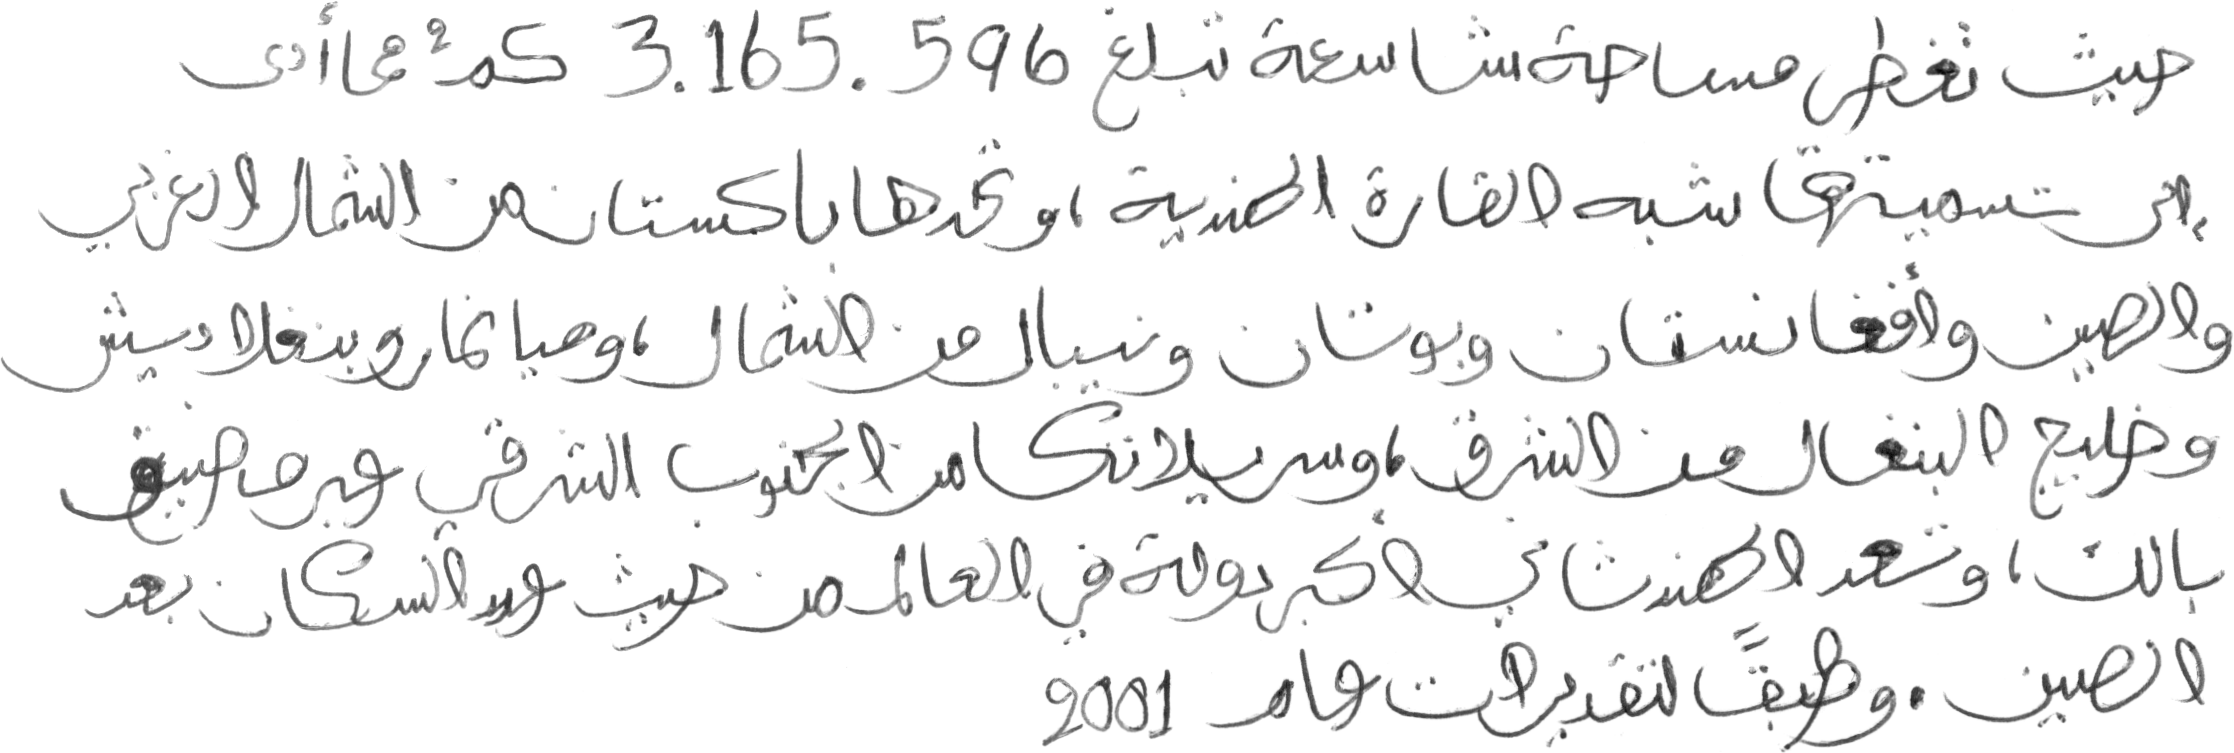 حيث تغطي مساحة شاسعة تبلغ 3.165.596 كم² مما أدى
إلى تسميتها شبه القارة الهندية ، وتحدها باكستان من الشمال الغربي
والصين وأفغانستان وبوتان ونيبال من الشمال ، وميانمار وبنغلاديش
وخليج البنغال من الشرق ، وسريلانكا من الجنوب الشرقي عبر مضيق
بالك ، وتعد الهند ثاني أكبر دولة في العالم من حيث عدد السكان بعد
الصين . وطبقًا لتقديرات عام 2001